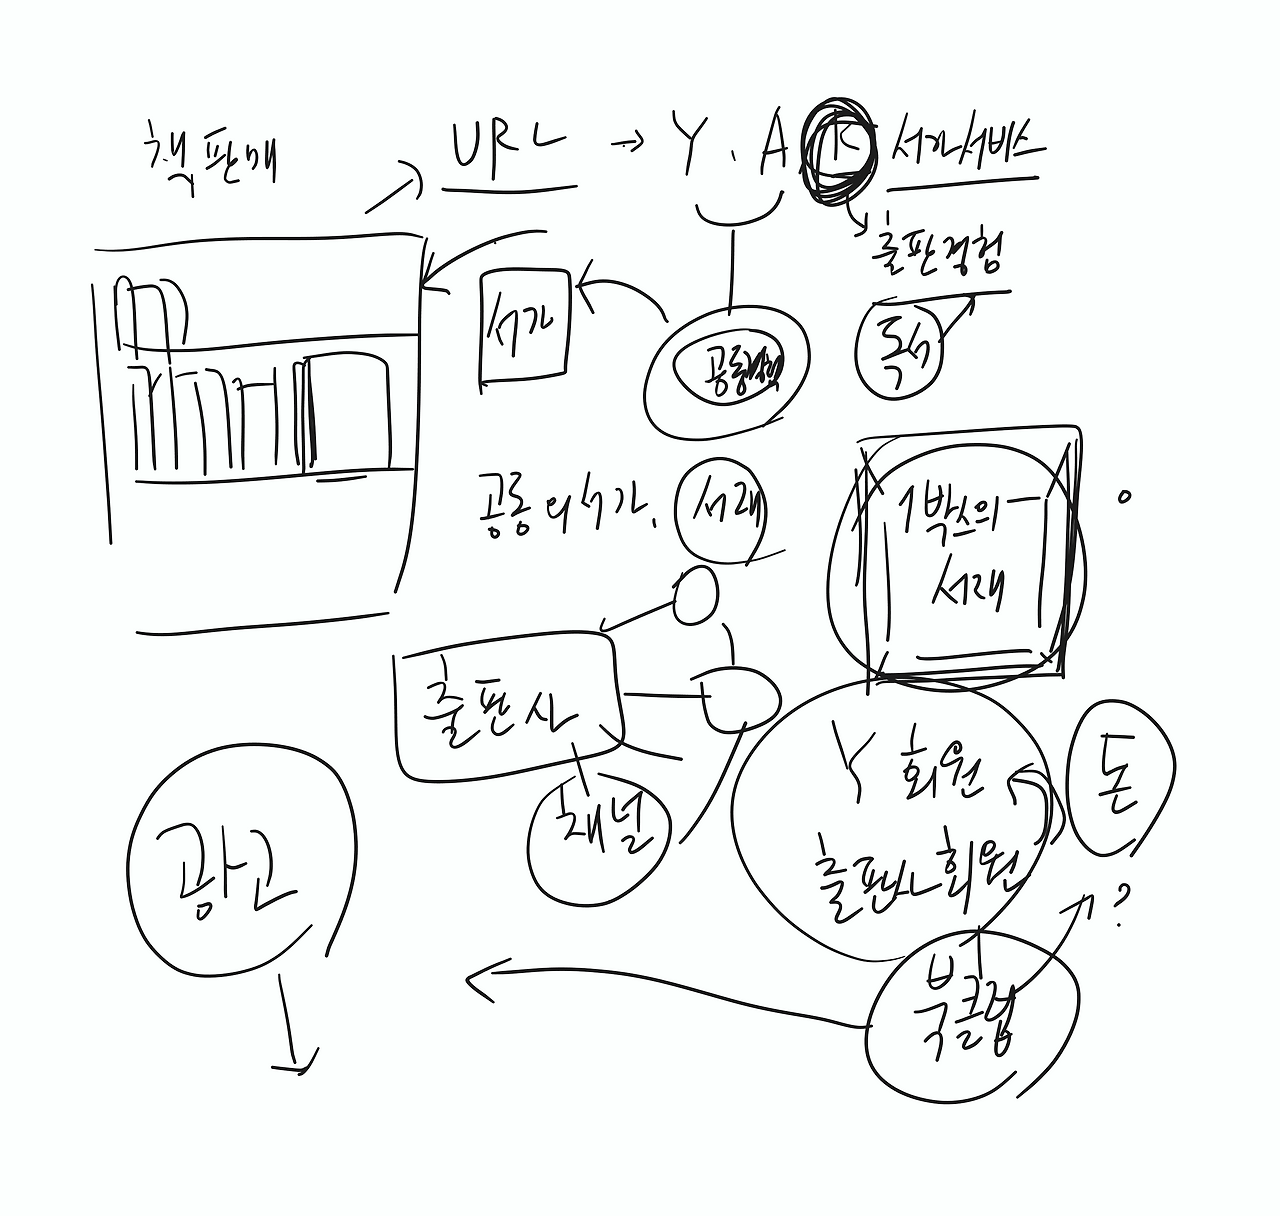 책판매
URL → Y . A K 서가서비스
출판경험
서가
공동
독서
공동의 서가. 서재
1박스의
서재
출판사
채널
Y 회원
출판사 회원
돈
?
광고
북클럽